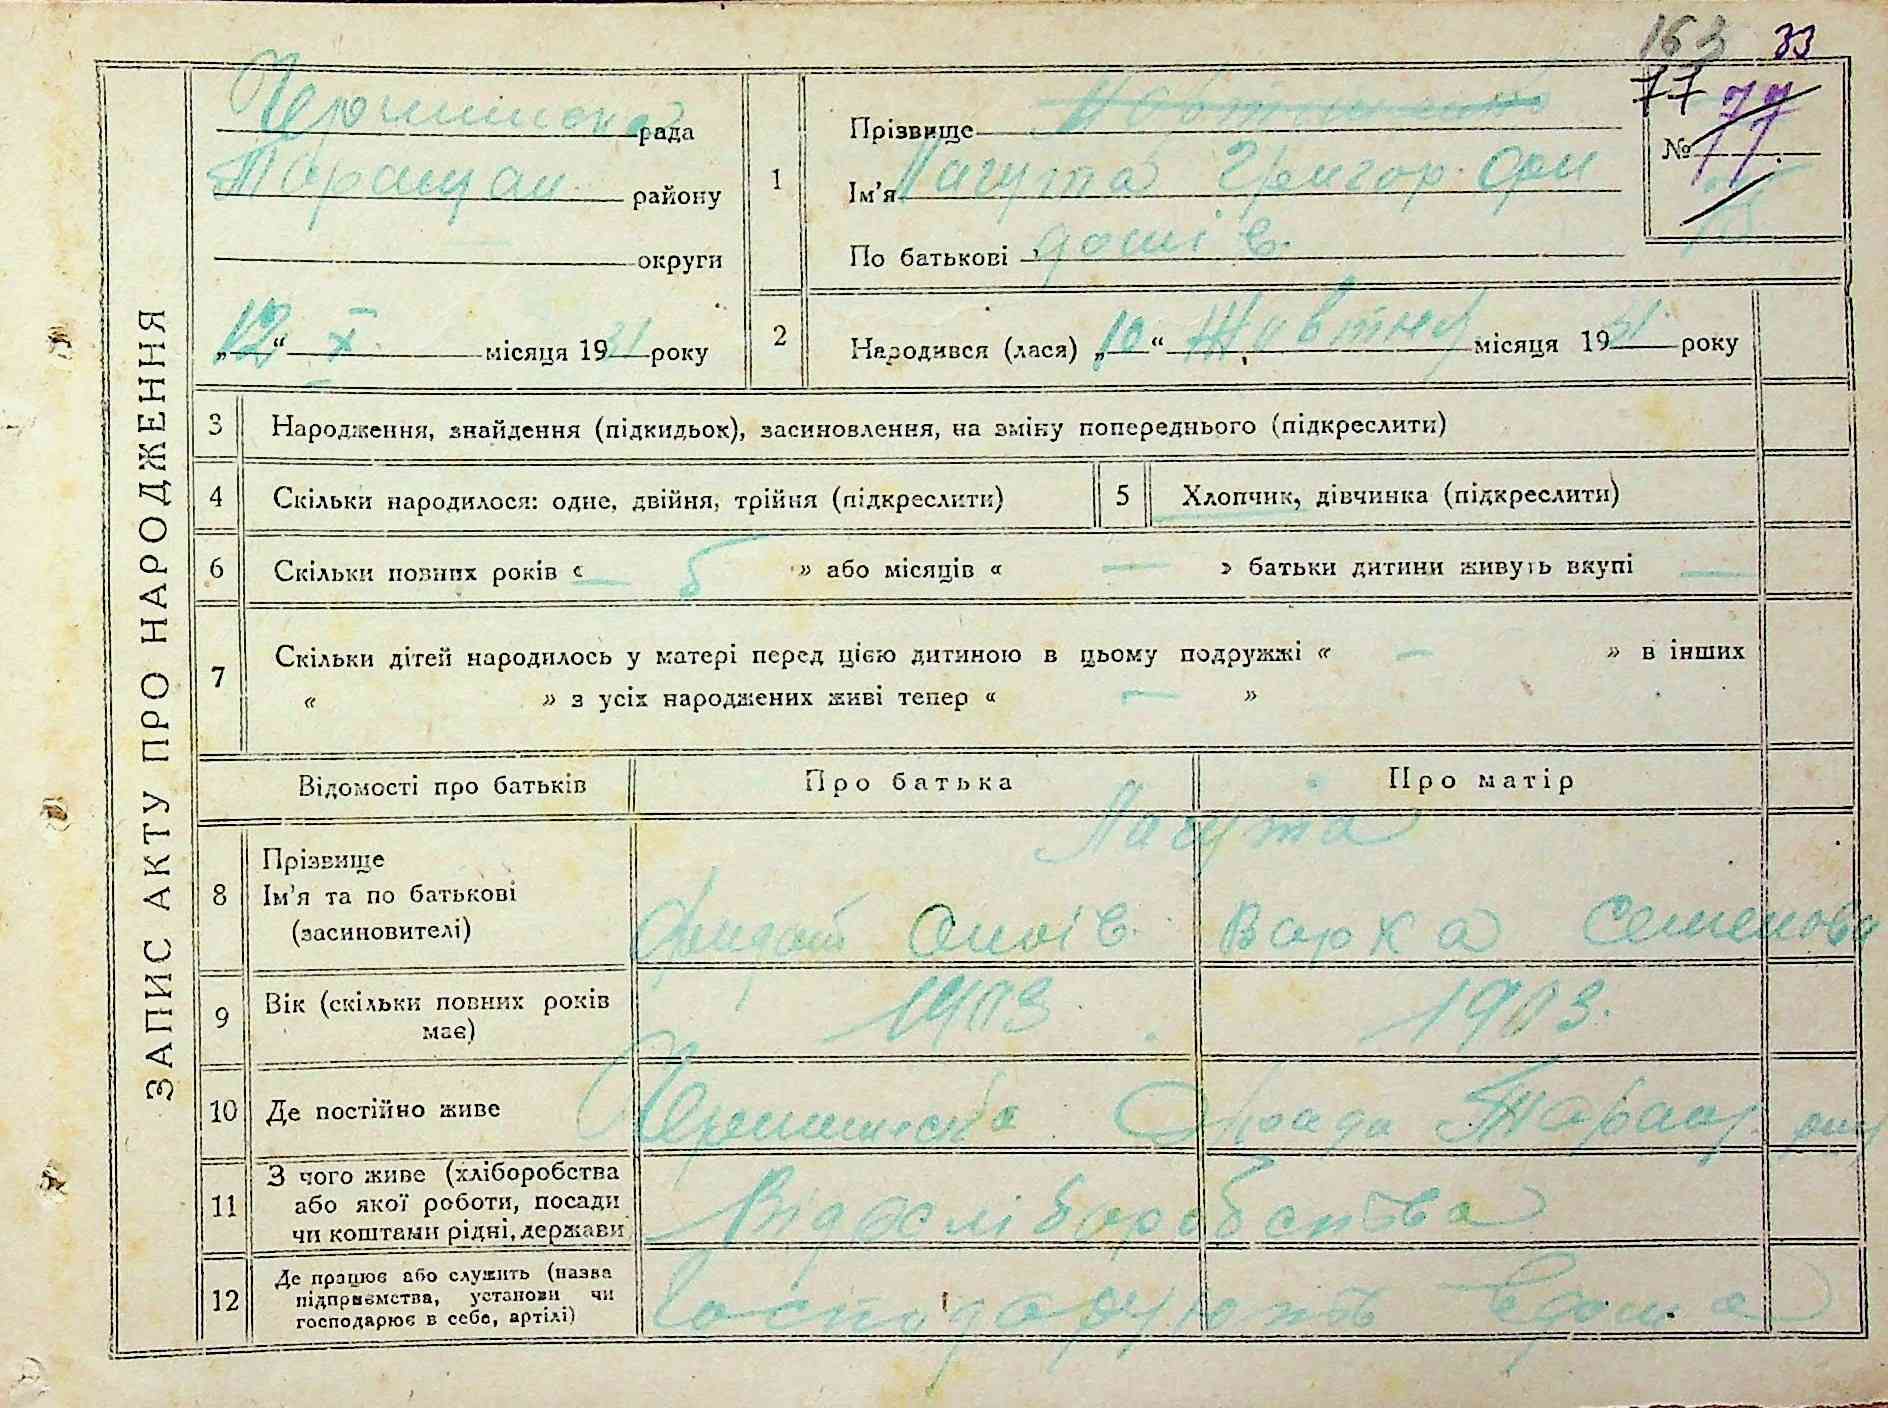 163 33
77 77
ЗАПИС АКТУ ПРО НАРОДЖЕННЯ
рада
району
округи
„12“ X місяця 1931 року
1
Прізвище
Ім'я Лагута Григор.
По батькові
№ 77
2
Народився (лася) „10“ Жовтня місяця 1931 року
3 Народження, знайдення (підкидьок), засиновлення, на зміну попереднього (підкреслити)
4 Скільки народилося: одне, двійня, трійня (підкреслити)
5 Хлопчик, дівчинка (підкреслити)
6 Скільки повних років « — 5 » або місяців « — » батьки дитини живуть вкупі —
7 Скільки дітей народилось у матері перед цією дитиною в цьому подружжі « — » в інших
« » з усіх народжених живі тепер « — »
Відомості про батьків Про батька Про матір
Лагута
8 Прізвище
Ім'я та по батькові
(засиновителі)
Варка Семенова
9 Вік (скільки повних років
має)
1903 1903.
10 Де постійно живе
11 З чого живе (хліборобства
або якої роботи, посади
чи коштами рідні, держави
12 Де працює або служить (назва
підприємства, установи чи
господарює в себе, артілі)
Господарюють вдома